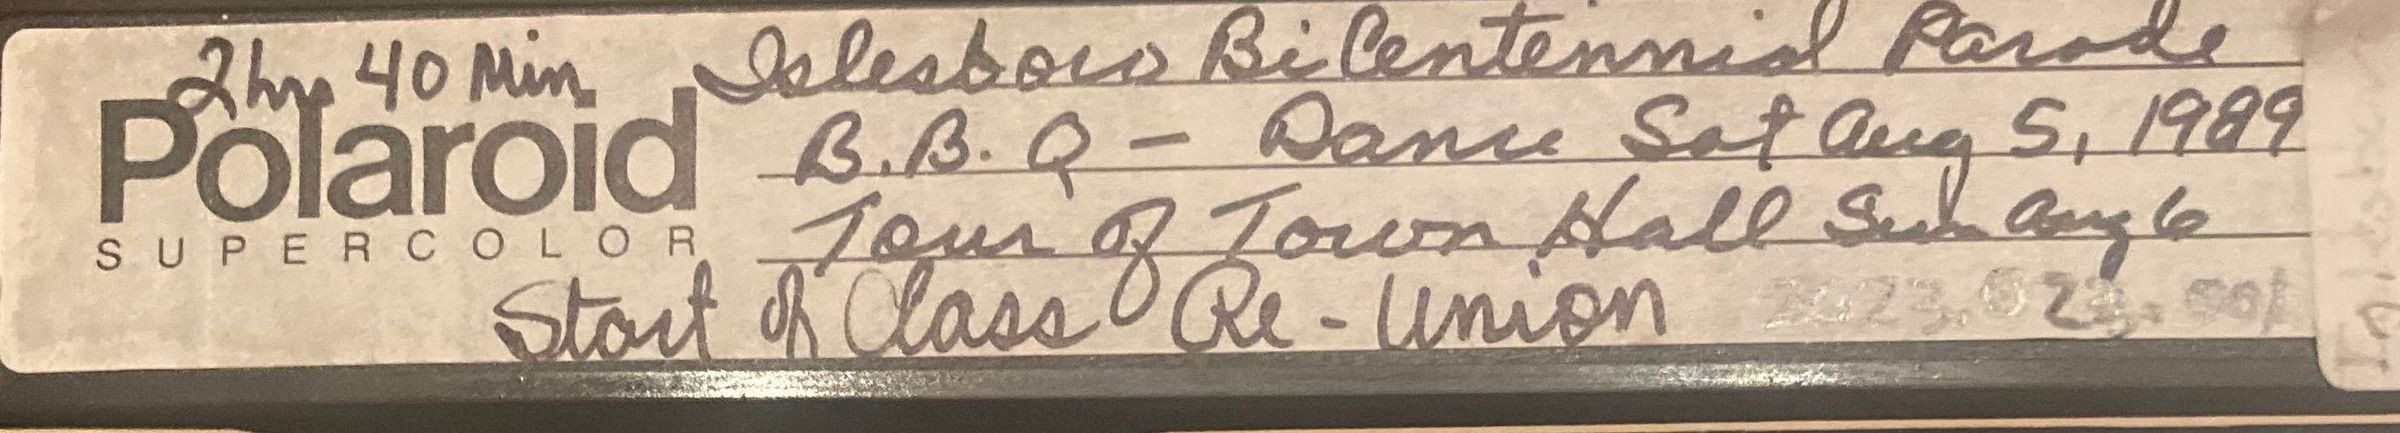 2 hrs 40 Min
Islesboro BiCentennial Parade
Polaroid
SUPERCOLOR
B.B.Q - Dance Sat Aug 5, 1989
Tour of Town Hall Sun Aug 6
Start of Class Re-Union
2023.023.001